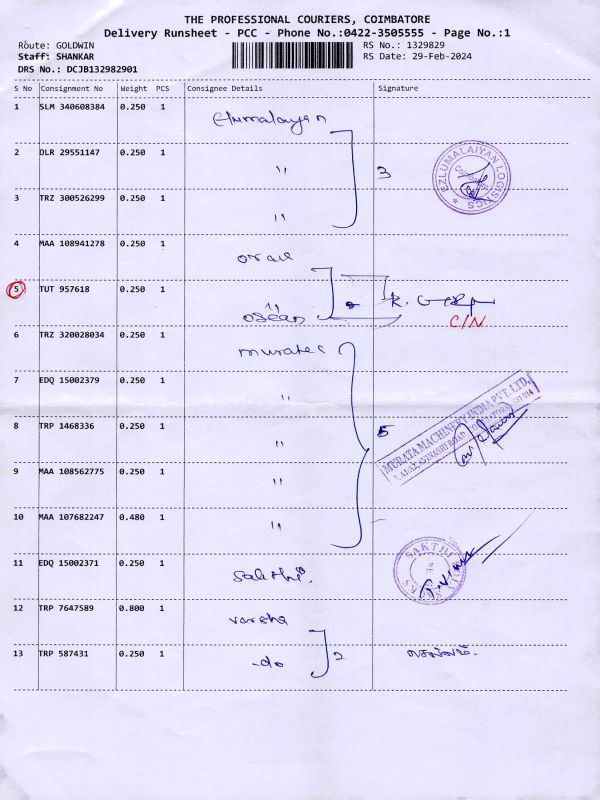 THE PROFESSIONAL COURIERS, COIMBATORE
Delivery Runsheet - PCC - Phone No.:0422-3505555 - Page No.:1
Route: GOLDWIN
RS No.: 1329829
Staff: SHANKAR
RS Date: 29-Feb-2024
DRS No.: DCJB132982901
S No Consignment No Weight PCS Consignee Details Signature
1 SLM 340608384 0.250 1 Elumalaiyan
2 DLR 29551147 0.250 1 " 3
EZLUMALAIYAN LOGISTICS
Coimbatore
3 TRZ 300526299 0.250 1 "
4 MAA 108941278 0.250 1
5 TUT 957618 0.250 1 "
osean
C/N
6 TRZ 320028034 0.250 1 muratec
7 EDQ 15002379 0.250 1 "
8 TRP 1468336 0.250 1 " 5
MURATA MACHINERY INDIA PVT. LTD.
AVINASHI ROAD
9 MAA 108562775 0.250 1 "
10 MAA 107682247 0.480 1 "
11 EDQ 15002371 0.250 1 Sakthi
SAKTHI
12 TRP 7647589 0.800 1 varsha
13 TRP 587431 0.250 1 -do 2